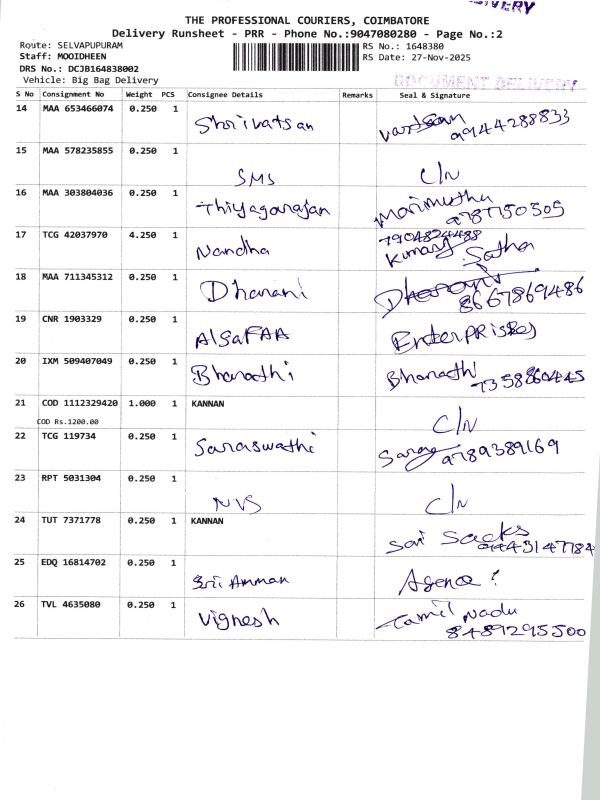 THE PROFESSIONAL COURIERS, COIMBATORE
Delivery Runsheet - PRR - Phone No.:9047080280 - Page No.:2
Route: SELVAPUPURAM
RS No.: 1648380
Staff: MOOIDHEEN
RS Date: 27-Nov-2025
DRS No.: DCJB164838002
Vehicle: Big Bag Delivery
DOCUMENT DELIVERY
S No Consignment No Weight PCS Consignee Details Remarks Seal & Signature
14 MAA 653466074 0.250 1 Shrivatsan
9144288833
15 MAA 578235855 0.250 1 SMS C/N
16 MAA 303804036 0.250 1 Thiyagarajan Marimuthu
9787150505
17 TCG 42037970 4.250 1 Nandha 7904824488
Kumar Satha
18 MAA 711345312 0.250 1 Dharani Dharani
8667869486
19 CNR 1903329 0.250 1 AlsaFAA EnterPRises
20 IXM 509407049 0.250 1 Bharathi Bharathi
7358860445
21 COD 1112329420 1.000 1 KANNAN C/N
COD Rs.1200.00
22 TCG 119734 0.250 1 Saraswathi
9789389169
23 RPT 5031304 0.250 1 NVS C/N
24 TUT 7371778 0.250 1 KANNAN Sori Sacks
9443147784
25 EDQ 16814702 0.250 1 Sri Amman
26 TVL 4635080 0.250 1 Vignesh Tamil Nadu
8489295500